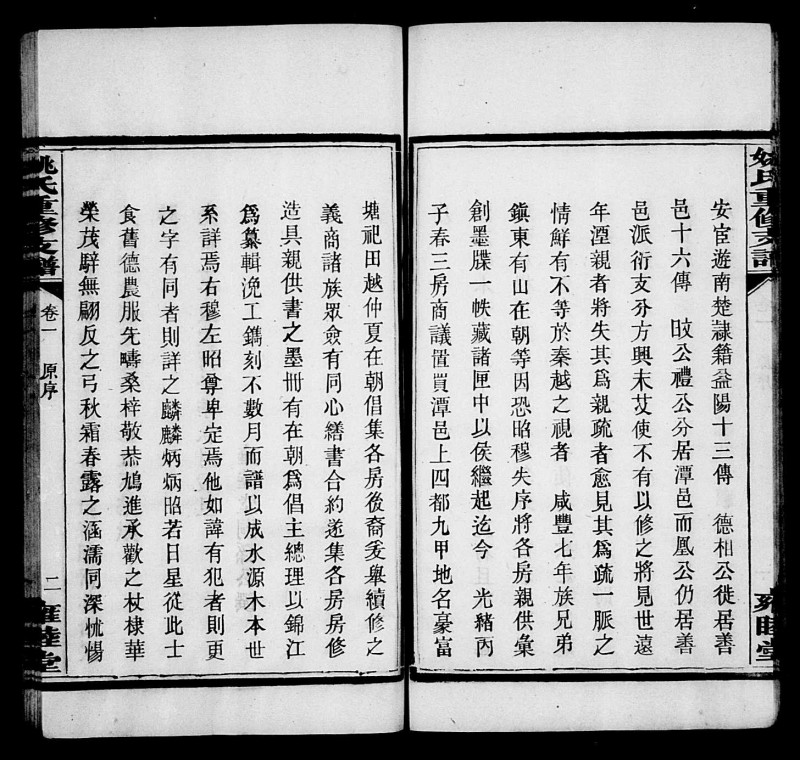 姚氏重修支譜
雍睦堂
安宦遊南楚隷籍益陽十三傳　德相公徙居善
邑十六傳　旼公禮公分居潭邑而凰公仍居善
邑派衍支分方興未艾使不有以修之將見世遠
年湮親者將失其為親疏者愈見其為疏一脈之
情鮮有不等於秦越之視者　咸豐七年族兄弟
鎮東有山在朝等因恐昭穆失序將各房親供彙
創墨牒一帙藏諸匣中以俟繼起迄今　光緒丙
子春三房商議置買潭邑上四都九甲地名豪富
塘祀田越仲夏在朝倡集各房後裔爰舉續修之
義商諸族眾僉有同心繕書合約遂集各房房修
造具親供書之墨册有在朝為倡主總理以錦江
為纂輯浼工鐫刻不數月而譜以成水源木本世
系詳焉右穆左昭尊卑定焉他如諱有犯者則更
之字有同者則詳之麟麟炳炳昭若日星從此士
食舊德農服先疇桑梓敬恭鳩進承歡之杖棣華
榮茂騂無翩反之弓秋霜春露之涵濡同深怵惕
姚氏重修支譜
卷一　原序
二
雍睦堂